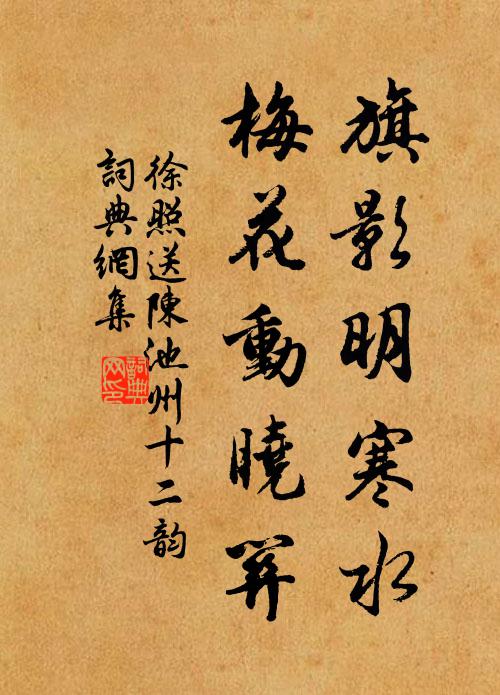 旗影明寒水
梅花動曉
徐照送陳池州十二韵
詞典網集
詞典
网印